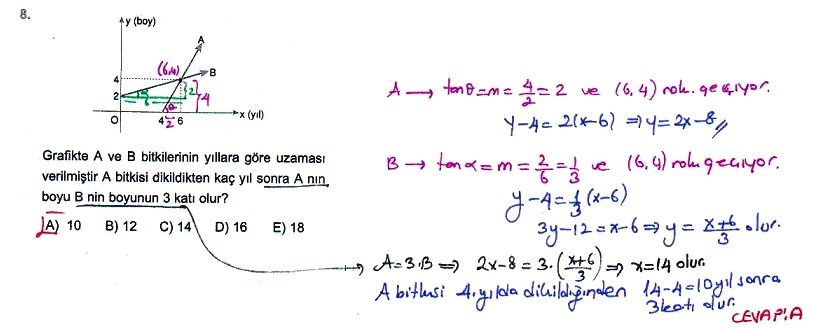 8.
y (boy)
A
(6,4)
B
4
2
α
6
2
4
θ
x (yıl)
O
4 2 6
Grafikte A ve B bitkilerinin yıllara göre uzaması
verilmiştir A bitkisi dikildikten kaç yıl sonra A nın
boyu B nin boyunun 3 katı olur?
A) 10 B) 12 C) 14 D) 16 E) 18
A → tanθ=m=4/2=2 ve (6,4) nok. geçiyor.
y-4=2(x-6) ⇒ y=2x-8//
B → tanα=m=2/6=1/3 ve (6,4) nok geçiyor.
y-4=1/3(x-6)
3y-12=x-6 ⇒ y=(x+6)/3 olur.
→ A=3.B ⇒ 2x-8=3.((x+6)/3) ⇒ x=14 olur.
A bitkisi 4. yılda dikildiğinden 14-4=10 yıl sonra
3 katı olur.
CEVAP:A